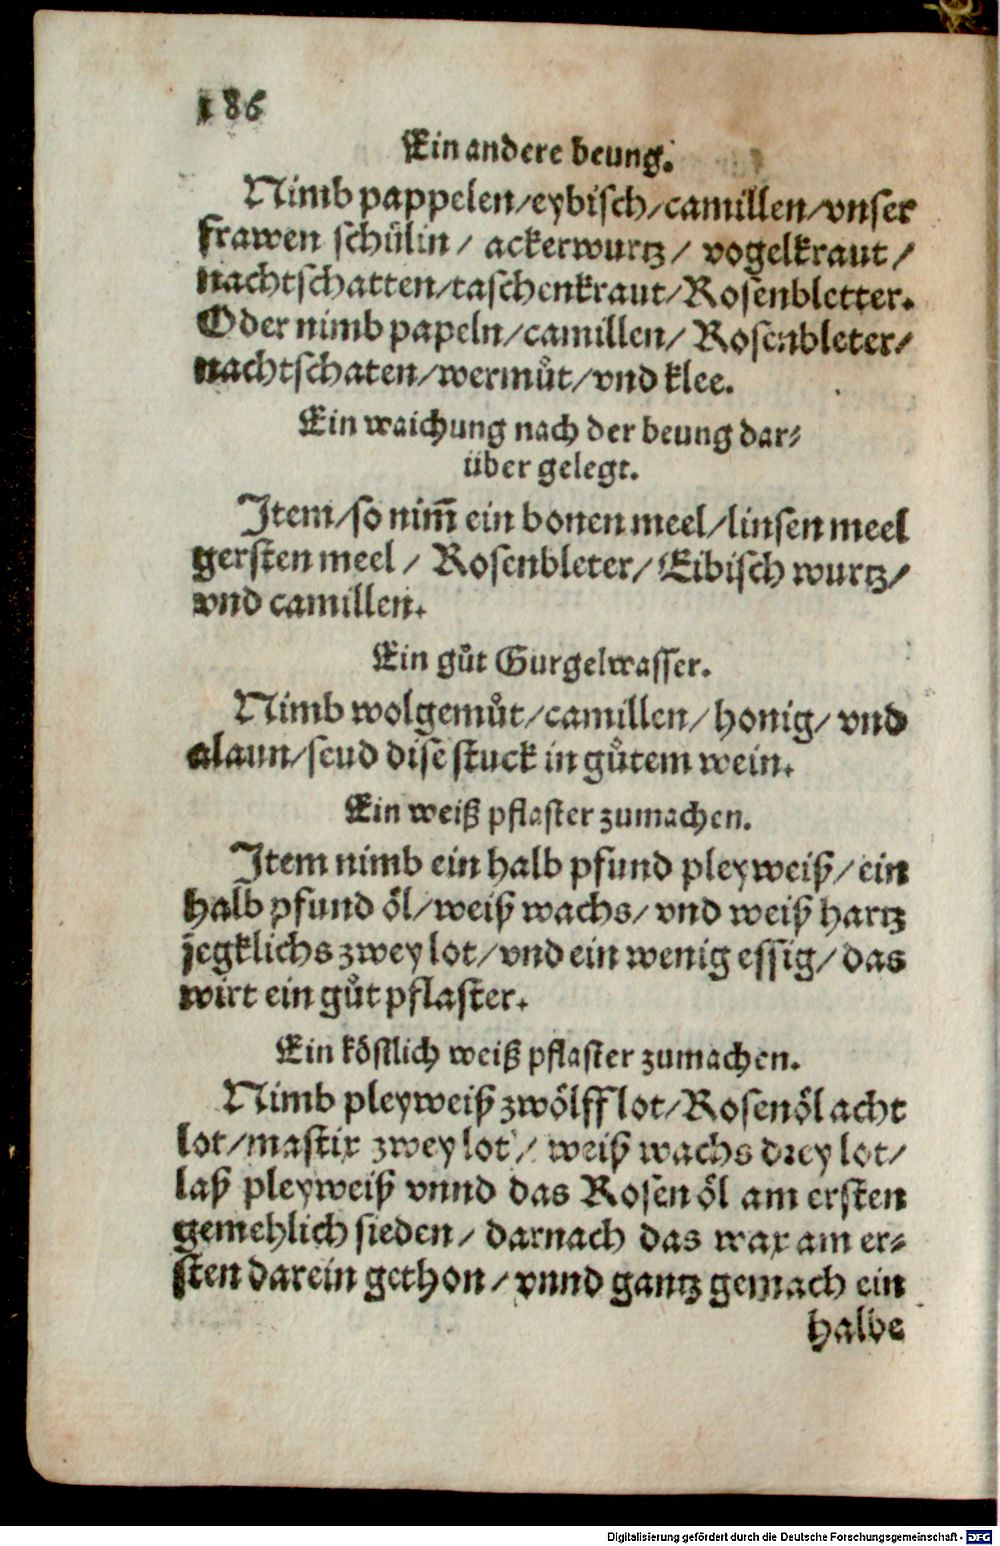 186
Ein andere beung.
Nimb pappelen/eybisch/camillen/vnser
frawen schůlin/ ackerwurtz/ vogelkraut/
nachtschatten/taschenkraut/Rosenbletter.
Oder nimb papeln/camillen/ Rosenbleter/
nachtschaten/wermůt/vnd klee.
Ein waichung nach der beung dar⸗
über gelegt.
Item/so nim̄ ein bonen meel/linsen meel
gersten meel/ Rosenbleter/Eibisch wurtz/
vnd camillen.
Ein gůt Gurgelwasser.
Nimb wolgemůt/camillen/honig/ vnd
alaun/seud dise stuck in gůtem wein.
Ein weiß pflaster zumachen.
Item nimb ein halb pfund pleyweiß/ein
halb pfund öl/weiß wachs/vnd weiß hartz
jegklichs zwey lot/vnd ein wenig essig/das
wirt ein gůt pflaster.
Ein köstlich weiß pflaster zumachen.
Nimb pleyweiß zwölff lot/Rosenöl acht
lot/mastix zwey lot/ weiß wachs drey lot/
laß pleyweiß vnnd das Rosen öl am ersten
gemehlich sieden/ darnach das wax am er⸗
sten darein gethon/vnnd gantz gemach ein
halbe
Digitalisierung gefördert durch die Deutsche Forschungsgemeinschaft - DFG